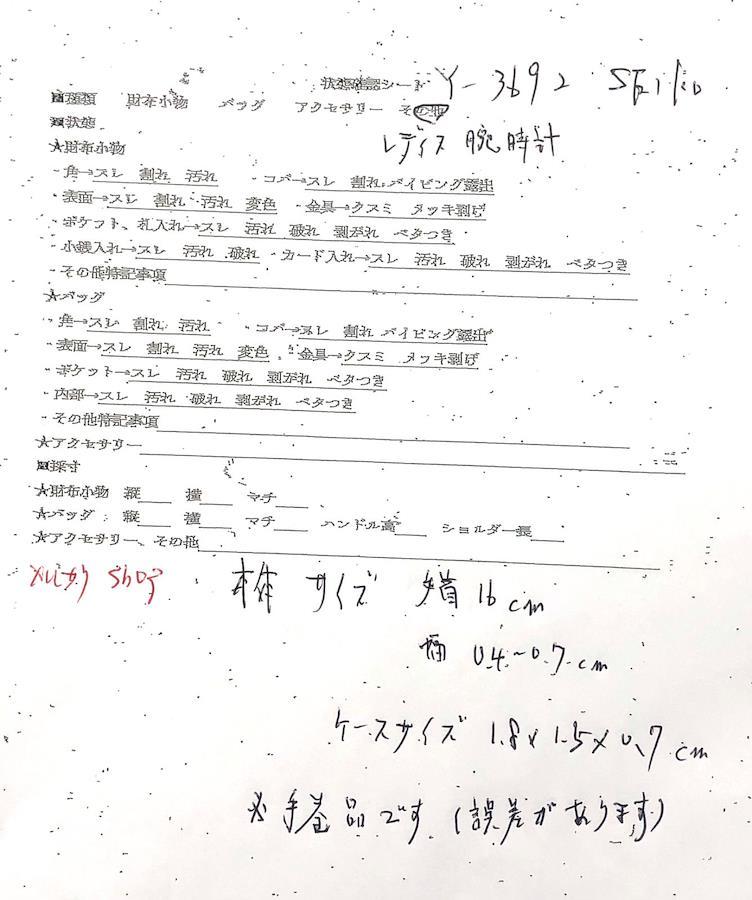 状態確認シート Y-3692 SEIKO
■種類 財布小物 バッグ アクセサリー その他
■状態 レディス 腕時計
★財布小物
・角→スレ 割れ 汚れ ・コバ→スレ 割れ パイピング露出
・表面→スレ 割れ 汚れ 変色 ・金具→クスミ メッキ剥げ
・ポケット、札入れ→スレ 汚れ 破れ 剥がれ ベタつき
・小銭入れ→スレ 汚れ 破れ ・カード入れ→スレ 汚れ 破れ 剥がれ ベタつき
・その他特記事項
★バッグ
・角→スレ 割れ 汚れ ・コバ→スレ 割れ パイピング露出
・表面→スレ 割れ 汚れ 変色 ・金具→クスミ メッキ剥げ
・ポケット→スレ 汚れ 破れ 剥がれ ベタつき
・内部→スレ 汚れ 破れ 剥がれ ベタつき
・その他特記事項
★アクセサリー
■採寸
★財布小物 縦 横 マチ
★バッグ 縦 横 マチ ハンドル高 ショルダー長
★アクセサリー、その他
shop 本体サイズ 手首 16cm
幅 0.4~0.7cm
ケースサイズ 1.8×1.5×0.7cm
※手巻品です(誤差があります)